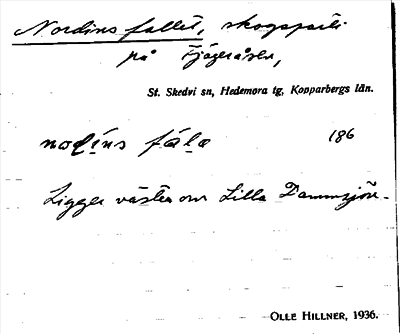 Nordins fallet, skogsparti
på Fjägeråsen,
St. Skedvi sn, Hedemora tg, Kopparbergs län.
nodi̇́ns fála 186
Ligger väster om Lilla Dammsjön.
OLLE HILLNER, 1936.